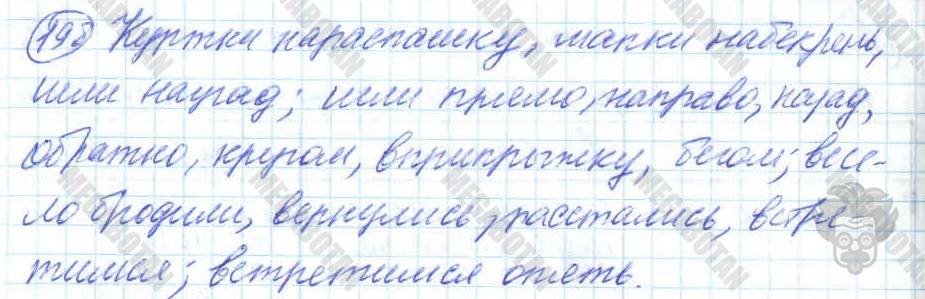 198 Куртки нараспашку, шапки набекрень,
шли наугад; шли прямо, направо, назад,
обратно, кругом, вприпрыжку, бегом; весе-
ло бродили, вернулись, расстались, встре-
тимся; встретимся опять.